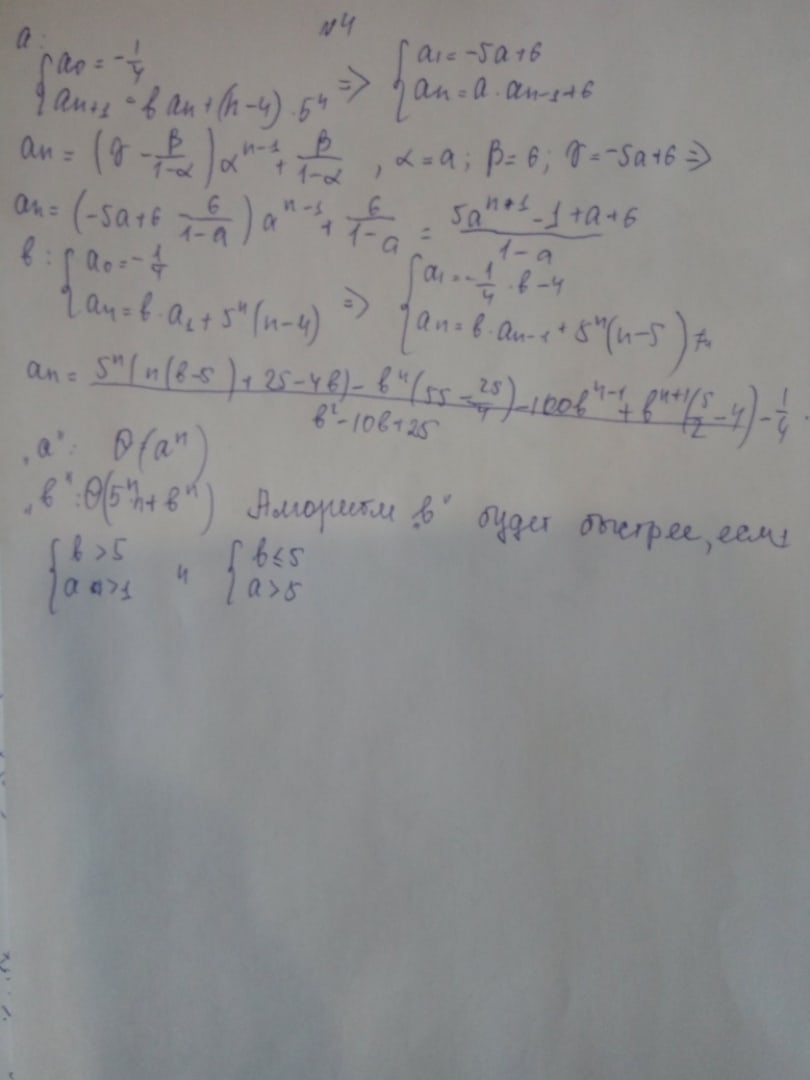 №4
a: { a₀ = -1/4
aₙ₊₁ = b aₙ + (n-4)·5ⁿ => { a₁ = -5a+6
aₙ = a·aₙ₋₁+6
aₙ = (γ - β/(1-α)) αⁿ⁻¹ + β/(1-α) , α = a; β = 6; γ = -5a+6 =>
aₙ = (-5a+6 - 6/(1-a)) aⁿ⁻¹ + 6/(1-a) = (5aⁿ⁺¹ - 1 + a + 6)/(1-a)
b: { a₀ = -1/4
aₙ = b·a₁ + 5ⁿ(n-4) => { a₁ = -1/4·b-4
aₙ = b·aₙ₋₁ + 5ⁿ(n-5)
aₙ = (5ⁿ(n(b-5)+25-4b) - bⁿ(55 - 25/4) - 100bⁿ⁻¹ + bⁿ⁺¹(5/2 - 4))/(b²-10b+25) - 1/4.
"a": Θ(aⁿ)
"b": Θ(5ⁿn+bⁿ) Алгоритм "b" будет быстрее, если
{ b>5
a >1 и { b≤5
a>5